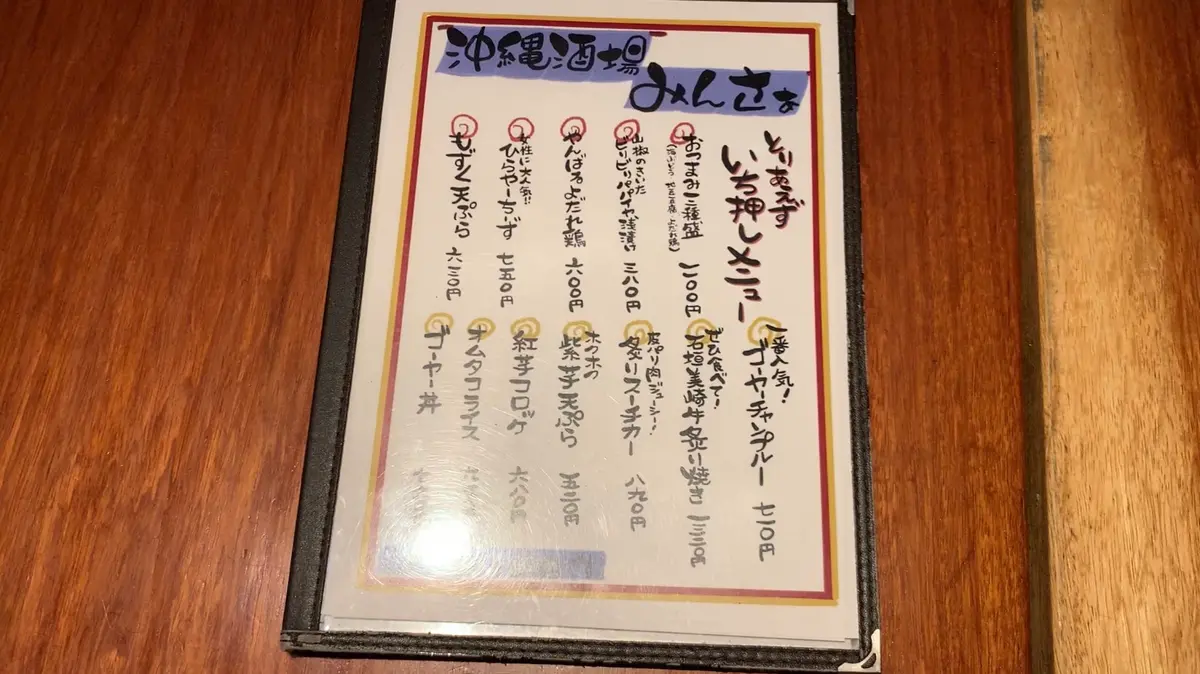 沖縄酒場
みんさぁ
とりあえず
いち押しメニュー
おつまみ三種盛
一一〇〇円
山椒のきいた
ビリビリパパイヤ浅漬け
三八〇円
やんばるよだれ鶏
六〇〇円
女性に大人気!!
ひらやーちぃず
七五〇円
もずく天ぷら
六三〇円
一番人気!
ゴーヤーチャンプルー
七一〇円
ぜひ食べて!
石垣美崎牛炙り焼き
皮パリ肉ジューシー!
炙りスーチカー
八九〇円
ホクホク
紫芋天ぷら
五二〇円
紅芋コロッケ
六八〇円
オムタコライス
ゴーヤー丼